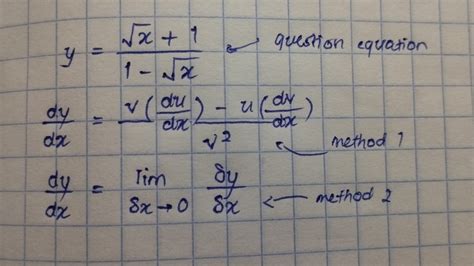 y = (√x + 1)/(1 - √x) ← question equation
dy/dx = (v(du/dx) - u(dv/dx))/v² ← method 1
dy/dx = lim δx→0 δy/δx ← method 2